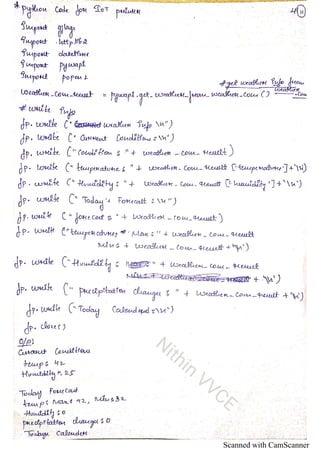 * Python Code for IoT printer
4 11
import gflags
import httplib2
import datetime
import pywapi
import popen2
#get weather info from weather.com
weather_com_result = pywapi.get_weather_from_weather_com()
# write info
fp. write (" weather Info \n")
fp. write (" Current Conditions :\n")
fp. write ("Conditions " + weather_com_result)
fp. write ("temperatures " + weather_com_result ['temperature']+'\n')
fp. write ("Humidity : " + weather_com_result ['humidity']+'\n')
fp. write (" Today's Forecast :\n")
fp. write ("forecast " + weather_com_result)
fp. write ("temperature Max : " + weather_com_result
Min + weather_com_result + "\n")
fp. write ("Humidity : " + weather_com_result
+ '\n')
fp. write (" precipitation changes " + weather_com_result + '\n')
fp. write (" Today Calendar :\n")
fp. close()
O/P:
Current Conditions
temp: 42
Humidity : 25
Today Forecast
temp: Max: 42, Min: 32
Humidity : 0
precipitation changes : 0
Today Calender
Nithin VVCE
Scanned with CamScanner